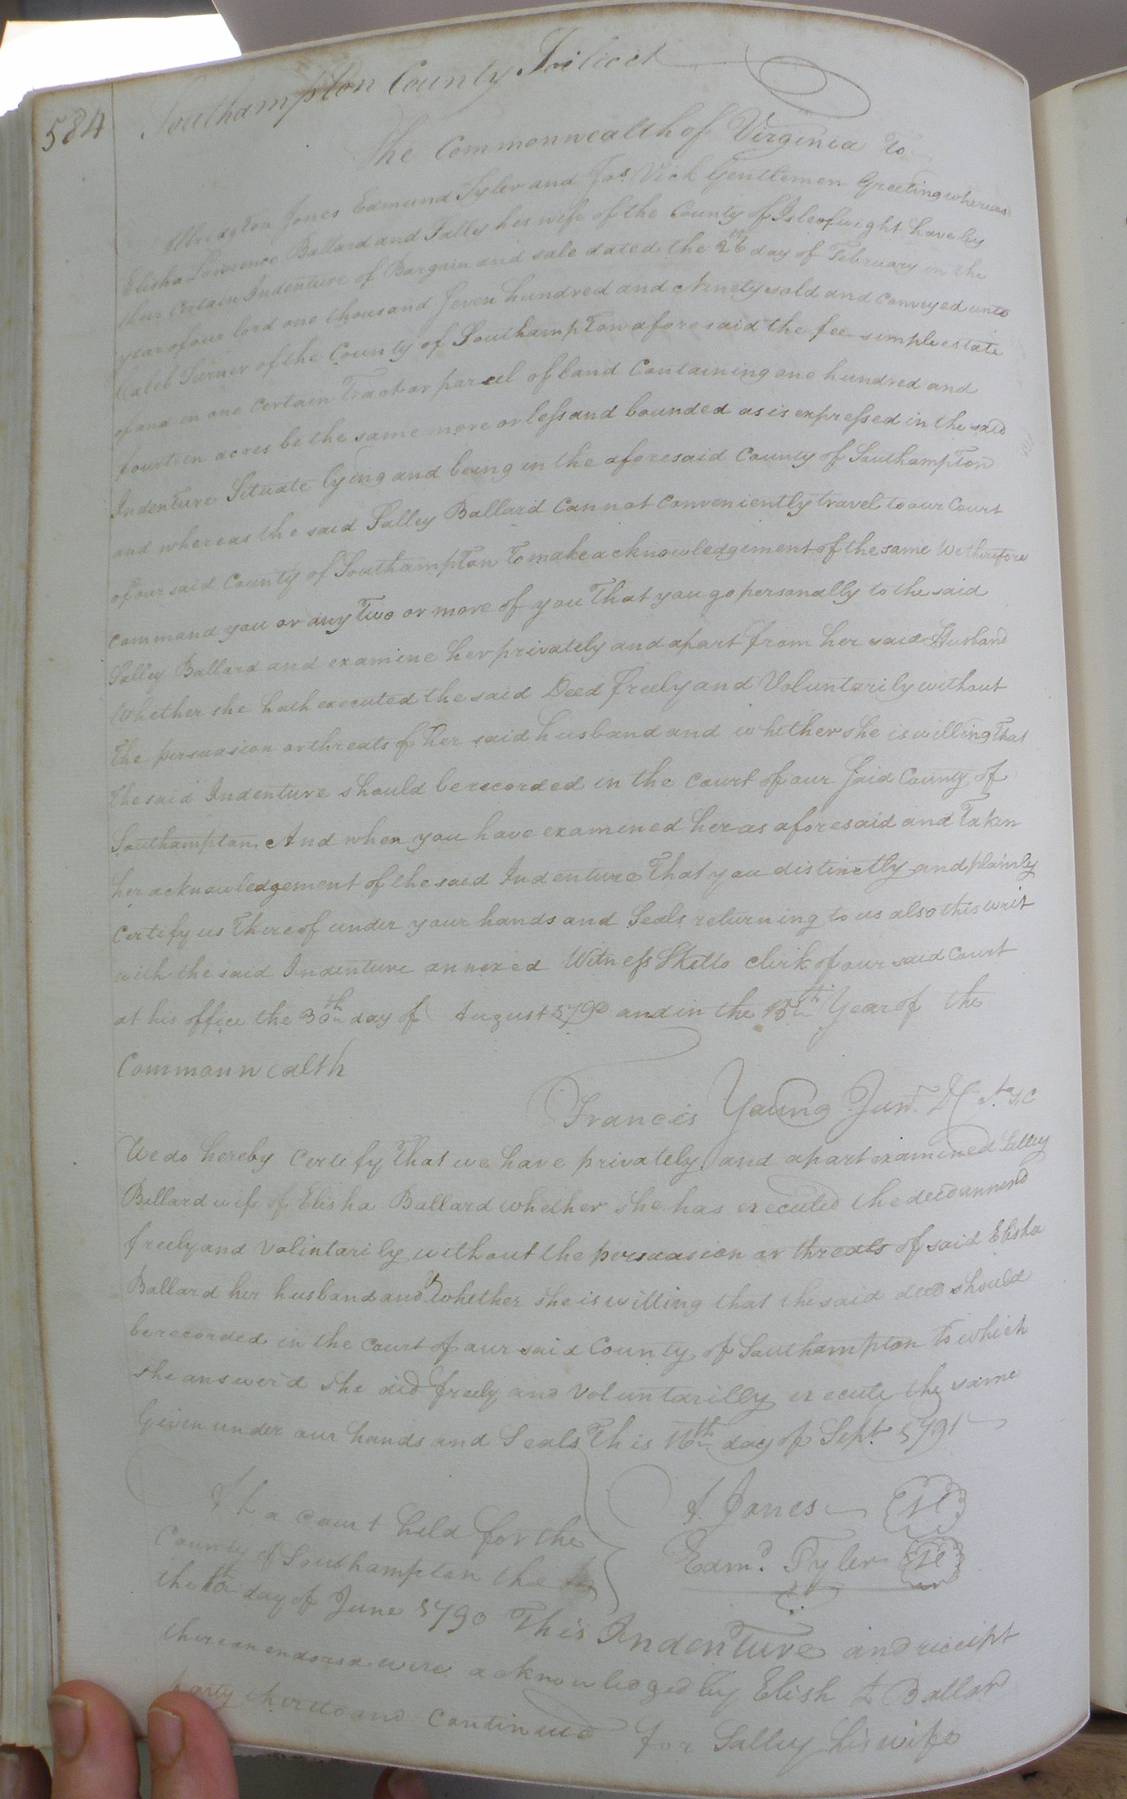 584
Southampton County Scilicet
The Commonwealth of Virginia To
Albridgton Jones Edmund Tyler and Jas. Vick Gentlemen Greeting whereas
Elisha Lawrence Ballard and Salley his wife of the County of Isle of wight have by
their Certain Indenture of Bargain and sale dated the 26th day of February in the
year of our lord one thousand Seven hundred and Ninety sold and Conveyed unto
Caleb Turner of the County of Southampton aforesaid the fee simple estate
of and in one Certain Tract or parcel of land Containing one hundred and
fourteen acres be the same more or less and bounded as is expressed in the said
Indenture Situate lying and being in the aforesaid County of Southampton
and whereas the said Salley Ballard Cannot Conveniently travel to our Court
of our said County of Southampton To make acknowledgement of the same We therefore
Command you or any Two or more of you That you go personally to the said
Salley Ballard and examine her privately and apart from her said Husband
Whether she hath executed the said Deed freely and Voluntarily without
the persuasion or threats of her said husband and whether she is willing That
the said Indenture should be recorded in the Court of our Said County of
Southampton. And when you have examined her as aforesaid and Taken
her acknowledgement of the said Indenture That you distinctly and plainly
Certify us Thereof under your hands and Seals returning to us also this writ
with the said Indenture annexed Witness Clerk of our said Court
at his office the 30th day of August 1790 and in the 15th Year of the
Commonwealth
Francis Young Junr.
We do hereby Certify That we have privately and apart examined Salley
Ballard wife of Elisha Ballard whether she has executed the deed annexed
freely and volintarily without the persuasion or threats of said Elisha
Ballard her husband and Whether she is willing that the said deed should
be recorded in the Court of our said County of Southampton to which
she answer'd she did freely and Voluntarilly execute the same
Given under our hands and Seals This 16th day of Sept. 1791
A. Jones
Edmd. Tyler
At a Court held for the
County of Southampton the
the 10th day of June 1790 This Indenture and receipt
thereon endorsed were acknowledged by Elish L Ballard
party thereto and Continued for Salley his wife